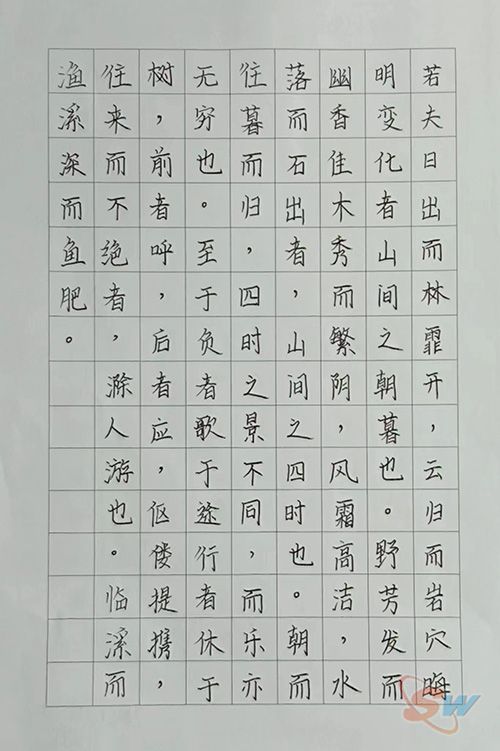 若夫日出而林霏开，云归而岩穴晦
明变化者山间之朝暮也。野芳发而
幽香佳木秀而繁阴，风霜高洁，水
落而石出者，山间之四时也。朝而
往暮而归，四时之景不同，而乐亦
无穷也。至于负者歌于途行者休于
树，前者呼，后者应，伛偻提携，
往来而不绝者，滁人游也。临溪而
渔溪深而鱼肥。
SW